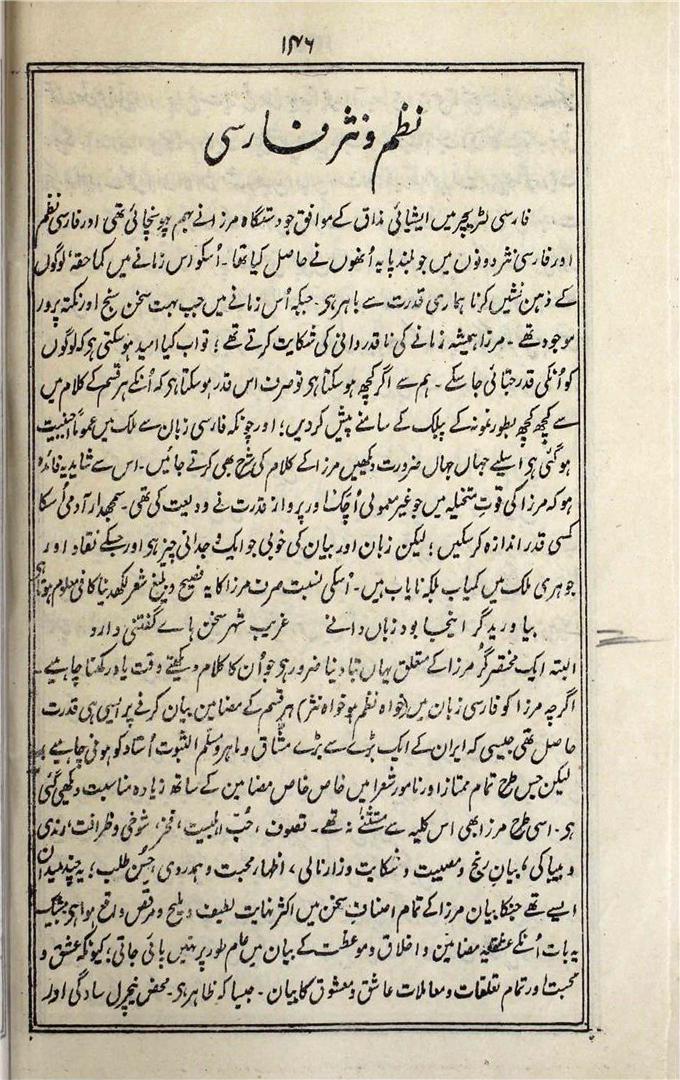 ۱۴۶
نظم و نثر فارسی
فارسی لٹریچر میں ایشیائی مذاق کے موافق جو دستگاہ مرزا نے بہم پہونچائی تھی اور فارسی نظم
اور فارسی نثر دونوں میں جو بلند پایہ اُنھوں نے حاصل کیا تھا۔ اُسکو اس زمانے میں کما حقہٗ لوگوں
کے ذہن نشیں کرنا ہماری قدرت سے باہر ہی۔ جبکہ اُس زمانے میں جب بہت سخن سنج اور نکتہ پرور
موجود تھے۔ مرزا ہمیشہ زمانے کی ناقدردانی کی شکایت کرتے تھے؛ تو اب کیا امید ہو سکتی ہی کہ لوگوں
کو اُنکی قدر جتائی جا سکے۔ ہم سے اگر کچھ ہو سکتا ہی تو صرف اس قدر ہو سکتا ہی کہ اُنکے ہر قسم کے کلام میں
سے کچھ کچھ بطور نمونہ کے پبلک کے سامنے پیش کر دیں؛ اور چونکہ فارسی زبان سے ملک میں عموماً اجنبیت
ہو گئی ہی اسلیے جہاں جہاں ضرورت دیکھیں مرزا کے کلام کی شرح بھی کرتے جائیں۔ اس سے شاید یہ فائدہ
ہو کہ مرزا کی قوتِ متخیلہ میں جو غیر معمولی اُچک اور پرواز قدرت نے ودیعت کی تھی۔ سمجھدار آدمی اُسکا
کسی قدر اندازہ کر سکیں؛ لیکن زبان اور بیان کی خوبی جو ایک وجدانی چیز ہی اور جسکے نقاد اور
جوہری ملک میں کمیاب بلکہ نایاب ہیں۔ اُسکی نسبت صرف مرزا کا یہ فصیح و بلیغ شعر لکھدینا کافی معلوم ہوتا ہی
بیاورید گر اینجا بود زباں دانے غریب شہر سخن ہاے گفتنی دارد
البتہ ایک مختصر گُر مرزا کے متعلق یہاں بتا دینا ضرور ہی جو اُن کا کلام دیکھتے وقت یاد رکھنا چاہیے۔
اگرچہ مرزا کو فارسی زبان میں (خواہ نظم ہو خواہ نثر) ہر قسم کے مضامین بیان کرنے پر ایسی ہی قدرت
حاصل تھی جیسی کہ ایران کے ایک بڑے سے بڑے مشّاق و ماہر و مسلّم الثبوت اُستاد کو ہونی چاہیے
لیکن جس طرح تمام ممتاز اور نامور شعرا میں خاص خاص مضامین کے ساتھ زیادہ مناسبت دیکھی گئی
ہی۔ اسی طرح مرزا بھی اس کلیہ سے مستثنےٰ نہ تھے۔ تصوف، حُبِّ اہلبیت، فخر، شوخی و ظرافت، رندی
و بیباکی، بیانِ رنج و مصیبت و شکایت و زارنالی، اظہارِ محبت و ہمدردی، حُسنِ طلب؛ یہ چند میدان
ایسے تھے جنکا بیان مرزا کے تمام اصنافِ سخن میں اکثر نہایت لطیف و ملیح و مرقص واقع ہوا ہی بیشک
یہ بات اُنکے عشقیہ مضامین و اخلاق و موعظت کے بیان میں عام طور پر نہیں پائی جاتی؛ کیونکہ عشق و
محبت اور تمام تعلقات و معاملات عاشق و معشوق کا بیان۔ جیسا کہ ظاہر ہی۔ محض نیچرل سادگی اور